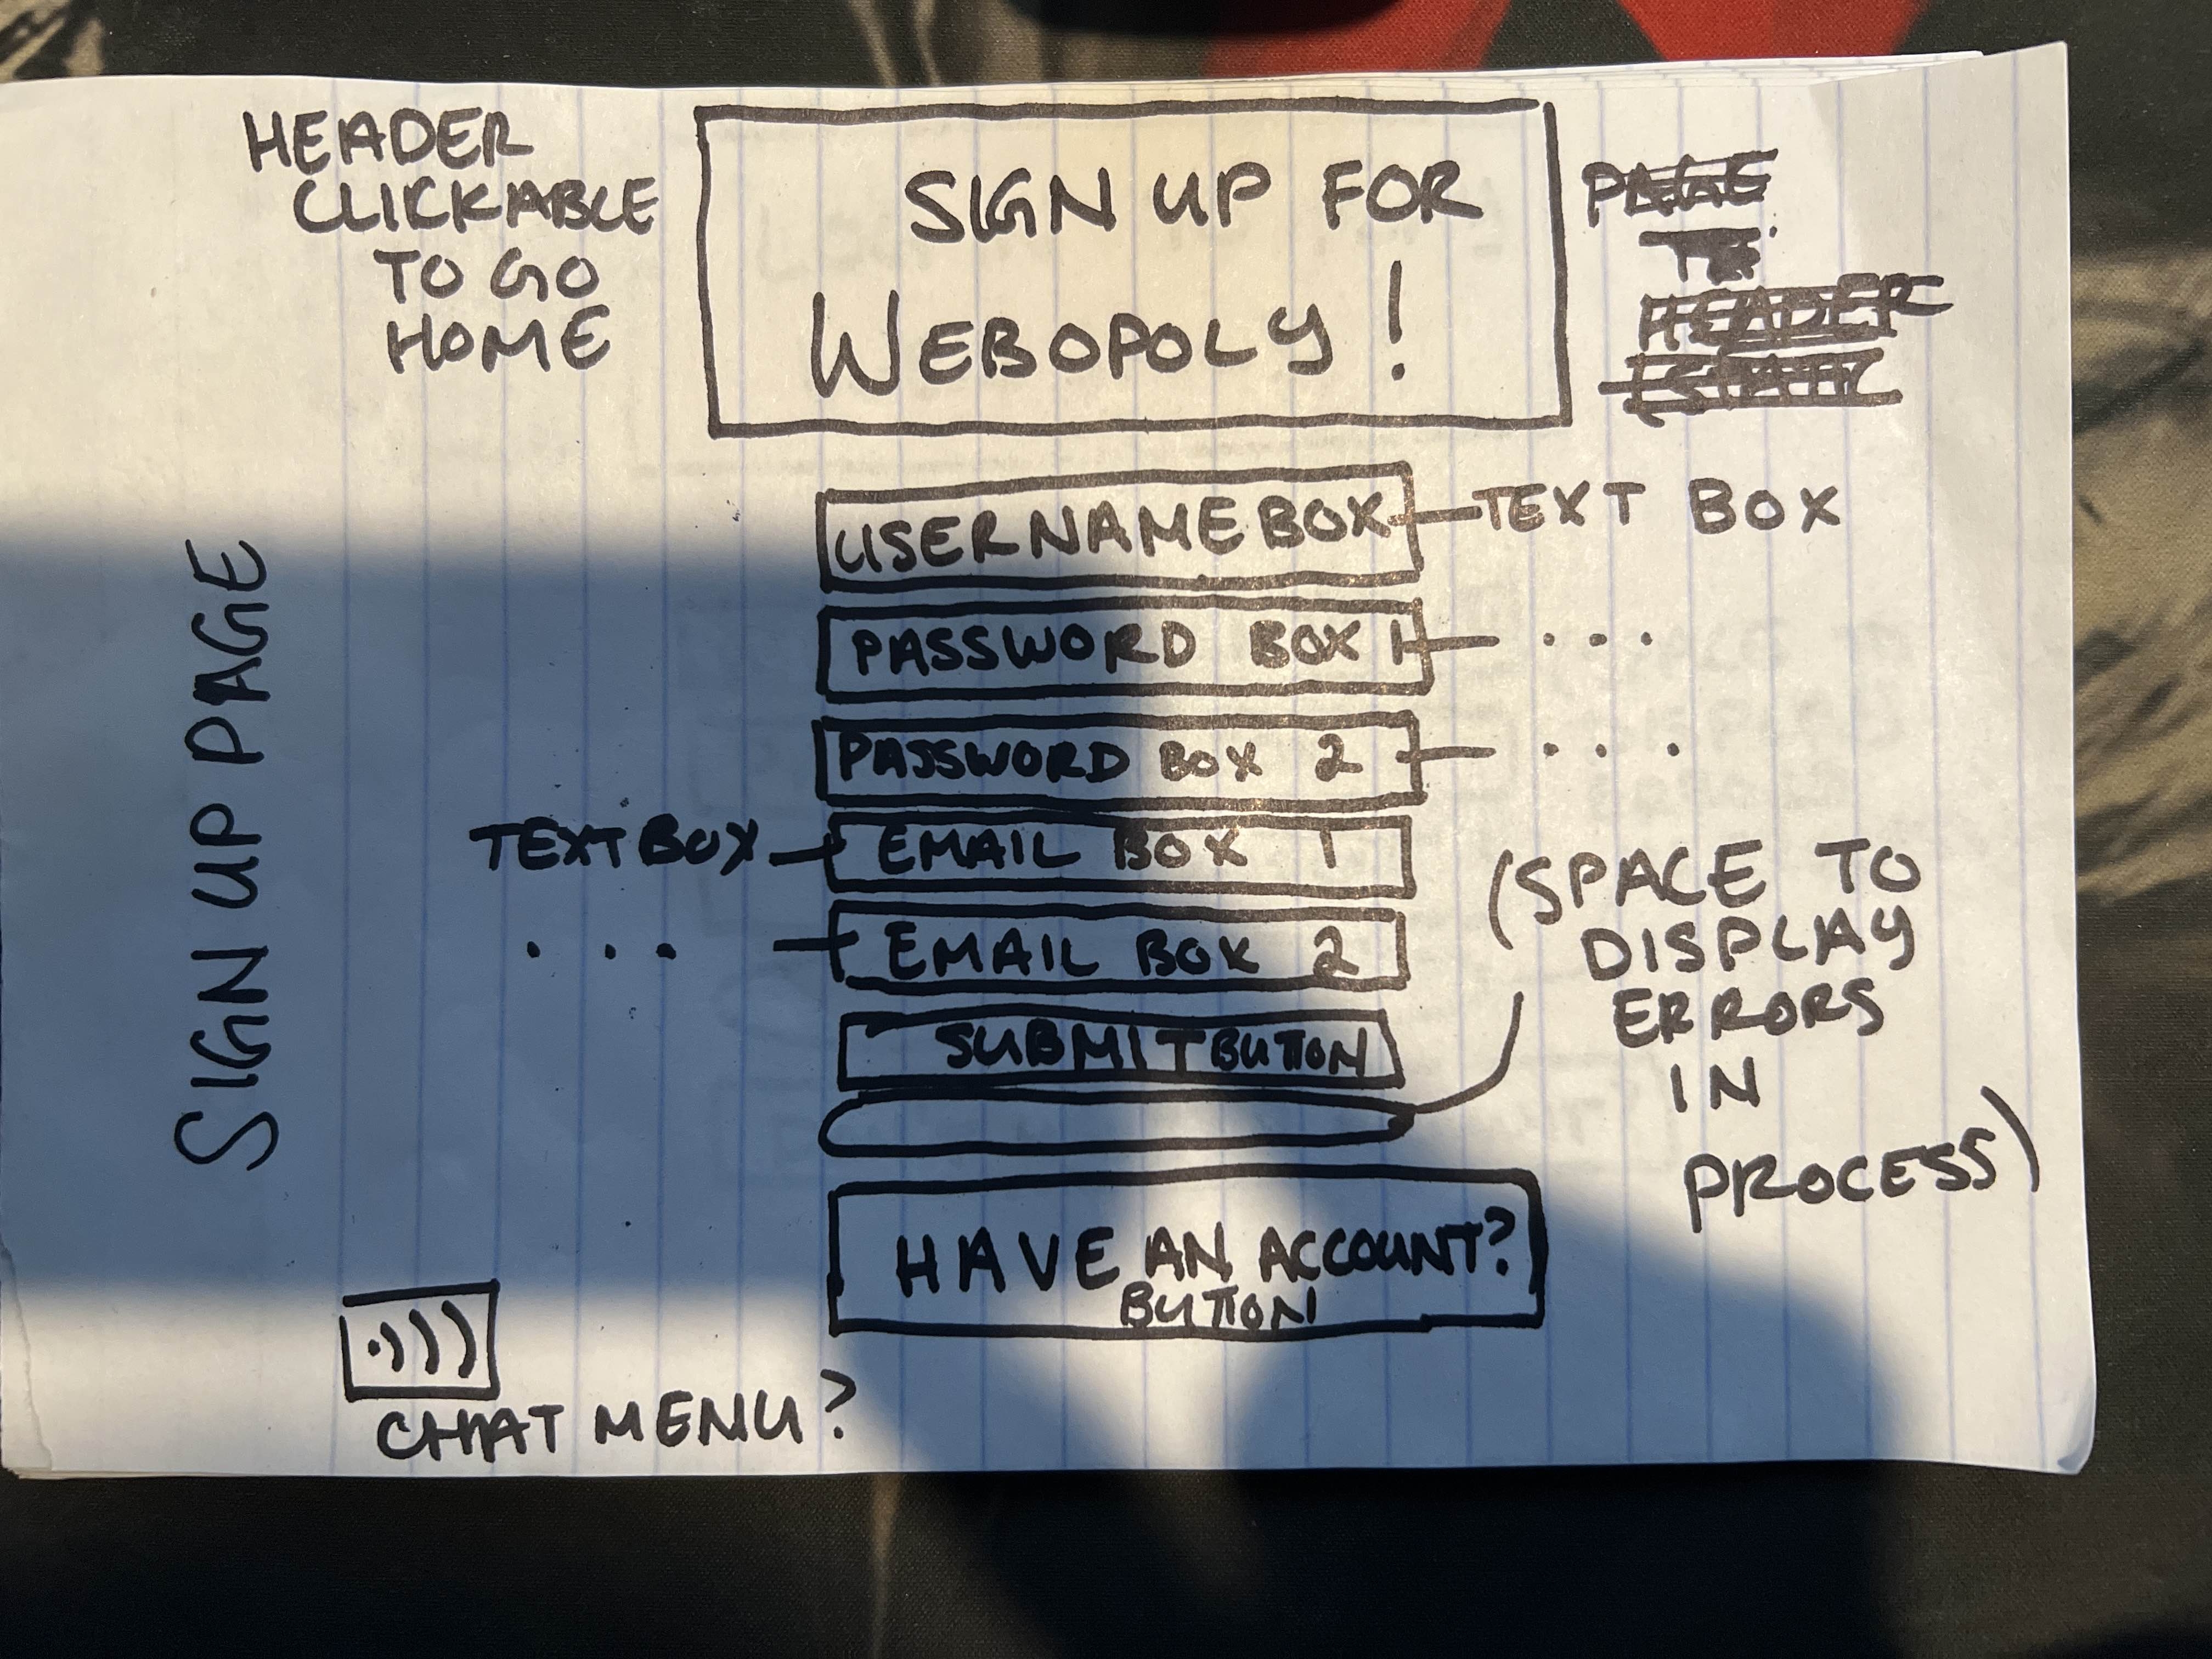 HEADER
CLICKABLE
TO GO
HOME
SIGN UP FOR
WEBOPOLY!
HEADER
SIGN UP PAGE
USERNAME BOX
TEXT BOX
PASSWORD BOX 1
. . .
PASSWORD BOX 2
. . .
TEXT BOX
EMAIL BOX 1
. . .
EMAIL BOX 2
SUBMIT BUTTON
(SPACE TO
DISPLAY
ERRORS
IN
PROCESS)
HAVE AN ACCOUNT?
BUTTON
CHAT MENU?